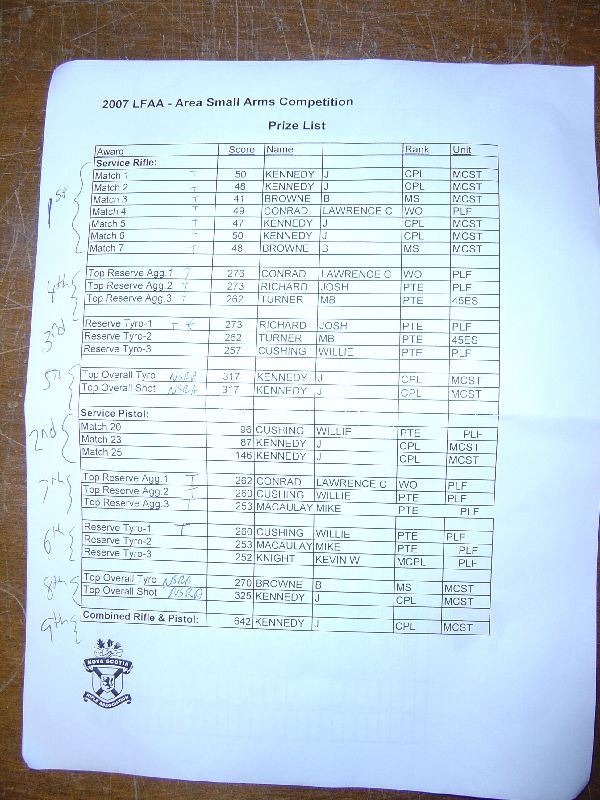 2007 LFAA - Area Small Arms Competition
Prize List
Award Score Name Rank Unit
Service Rifle:
1st
Match 1 T 50 KENNEDY J CPL MCST
Match 2 T 48 KENNEDY J CPL MCST
Match 3 T 41 BROWNE B MS MCST
Match 4 T 49 CONRAD LAWRENCE C WO PLF
Match 5 T 47 KENNEDY J CPL MCST
Match 6 T 50 KENNEDY J CPL MCST
Match 7 T 48 BROWNE B MS MCST
4th
Top Reserve Agg.1 T 276 CONRAD LAWRENCE C WO PLF
Top Reserve Agg.2 T 273 RICHARD JOSH PTE PLF
Top Reserve Agg.3 T 262 TURNER MB PTE 45ES
3rd
Reserve Tyro-1 T 273 RICHARD JOSH PTE PLF
Reserve Tyro-2 262 TURNER MB PTE 45ES
Reserve Tyro-3 257 CUSHING WILLIE PTE PLF
5th
Top Overall Tyro NSRA 317 KENNEDY J CPL MCST
Top Overall Shot NSRA 317 KENNEDY J CPL MCST
Service Pistol:
2nd
Match 20 96 CUSHING WILLIE PTE PLF
Match 23 87 KENNEDY J CPL MCST
Match 25 146 KENNEDY J CPL MCST
7th
Top Reserve Agg.1 T 262 CONRAD LAWRENCE C WO PLF
Top Reserve Agg.2 T 260 CUSHING WILLIE PTE PLF
Top Reserve Agg.3 T 253 MACAULAY MIKE PTE PLF
6th
Reserve Tyro-1 T 260 CUSHING WILLIE PTE PLF
Reserve Tyro-2 253 MACAULAY MIKE PTE PLF
Reserve Tyro-3 252 KNIGHT KEVIN W MCPL PLF
8th
Top Overall Tyro NSRA 270 BROWNE B MS MCST
Top Overall Shot NSRA 325 KENNEDY J CPL MCST
9th
Combined Rifle & Pistol: 642 KENNEDY J CPL MCST
NOVA SCOTIA
RIFLE ASSOCIATION